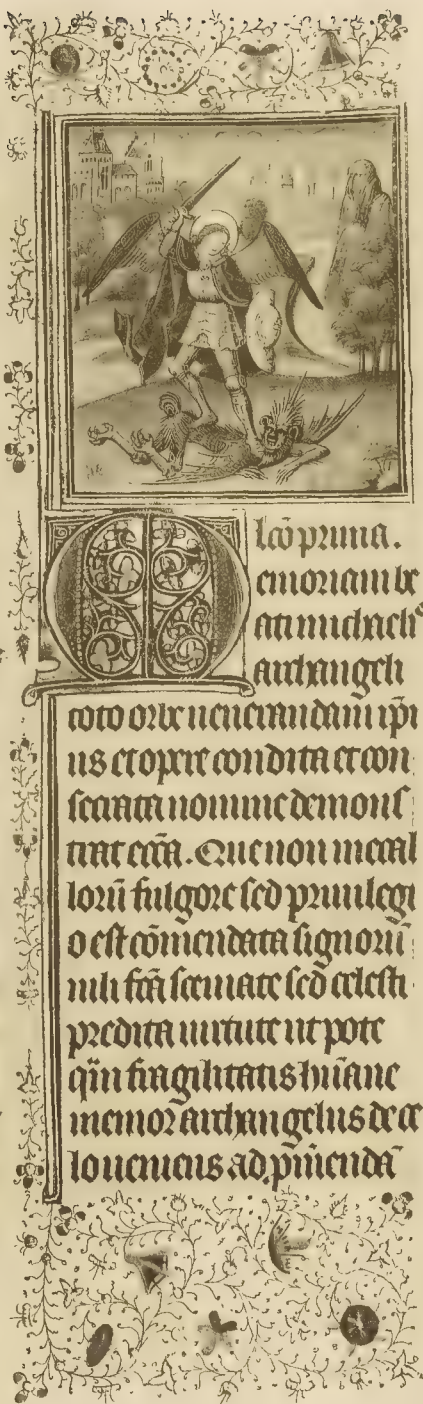 lcō prima.
Memoriam be
ati michaelis
archangeli
toto orbe uenerandam ipi
us et opere condita et con
secrata nomine demons
trat eccā. Que non metal
lorū fulgore sed priuilegi
o est cōmendata signorū
uili fcā scemate sed celesti
predita uirtute ut pote
qm̄ fragilitatis hūane
memor archangelus de ce
lo ueniens ad pmēda